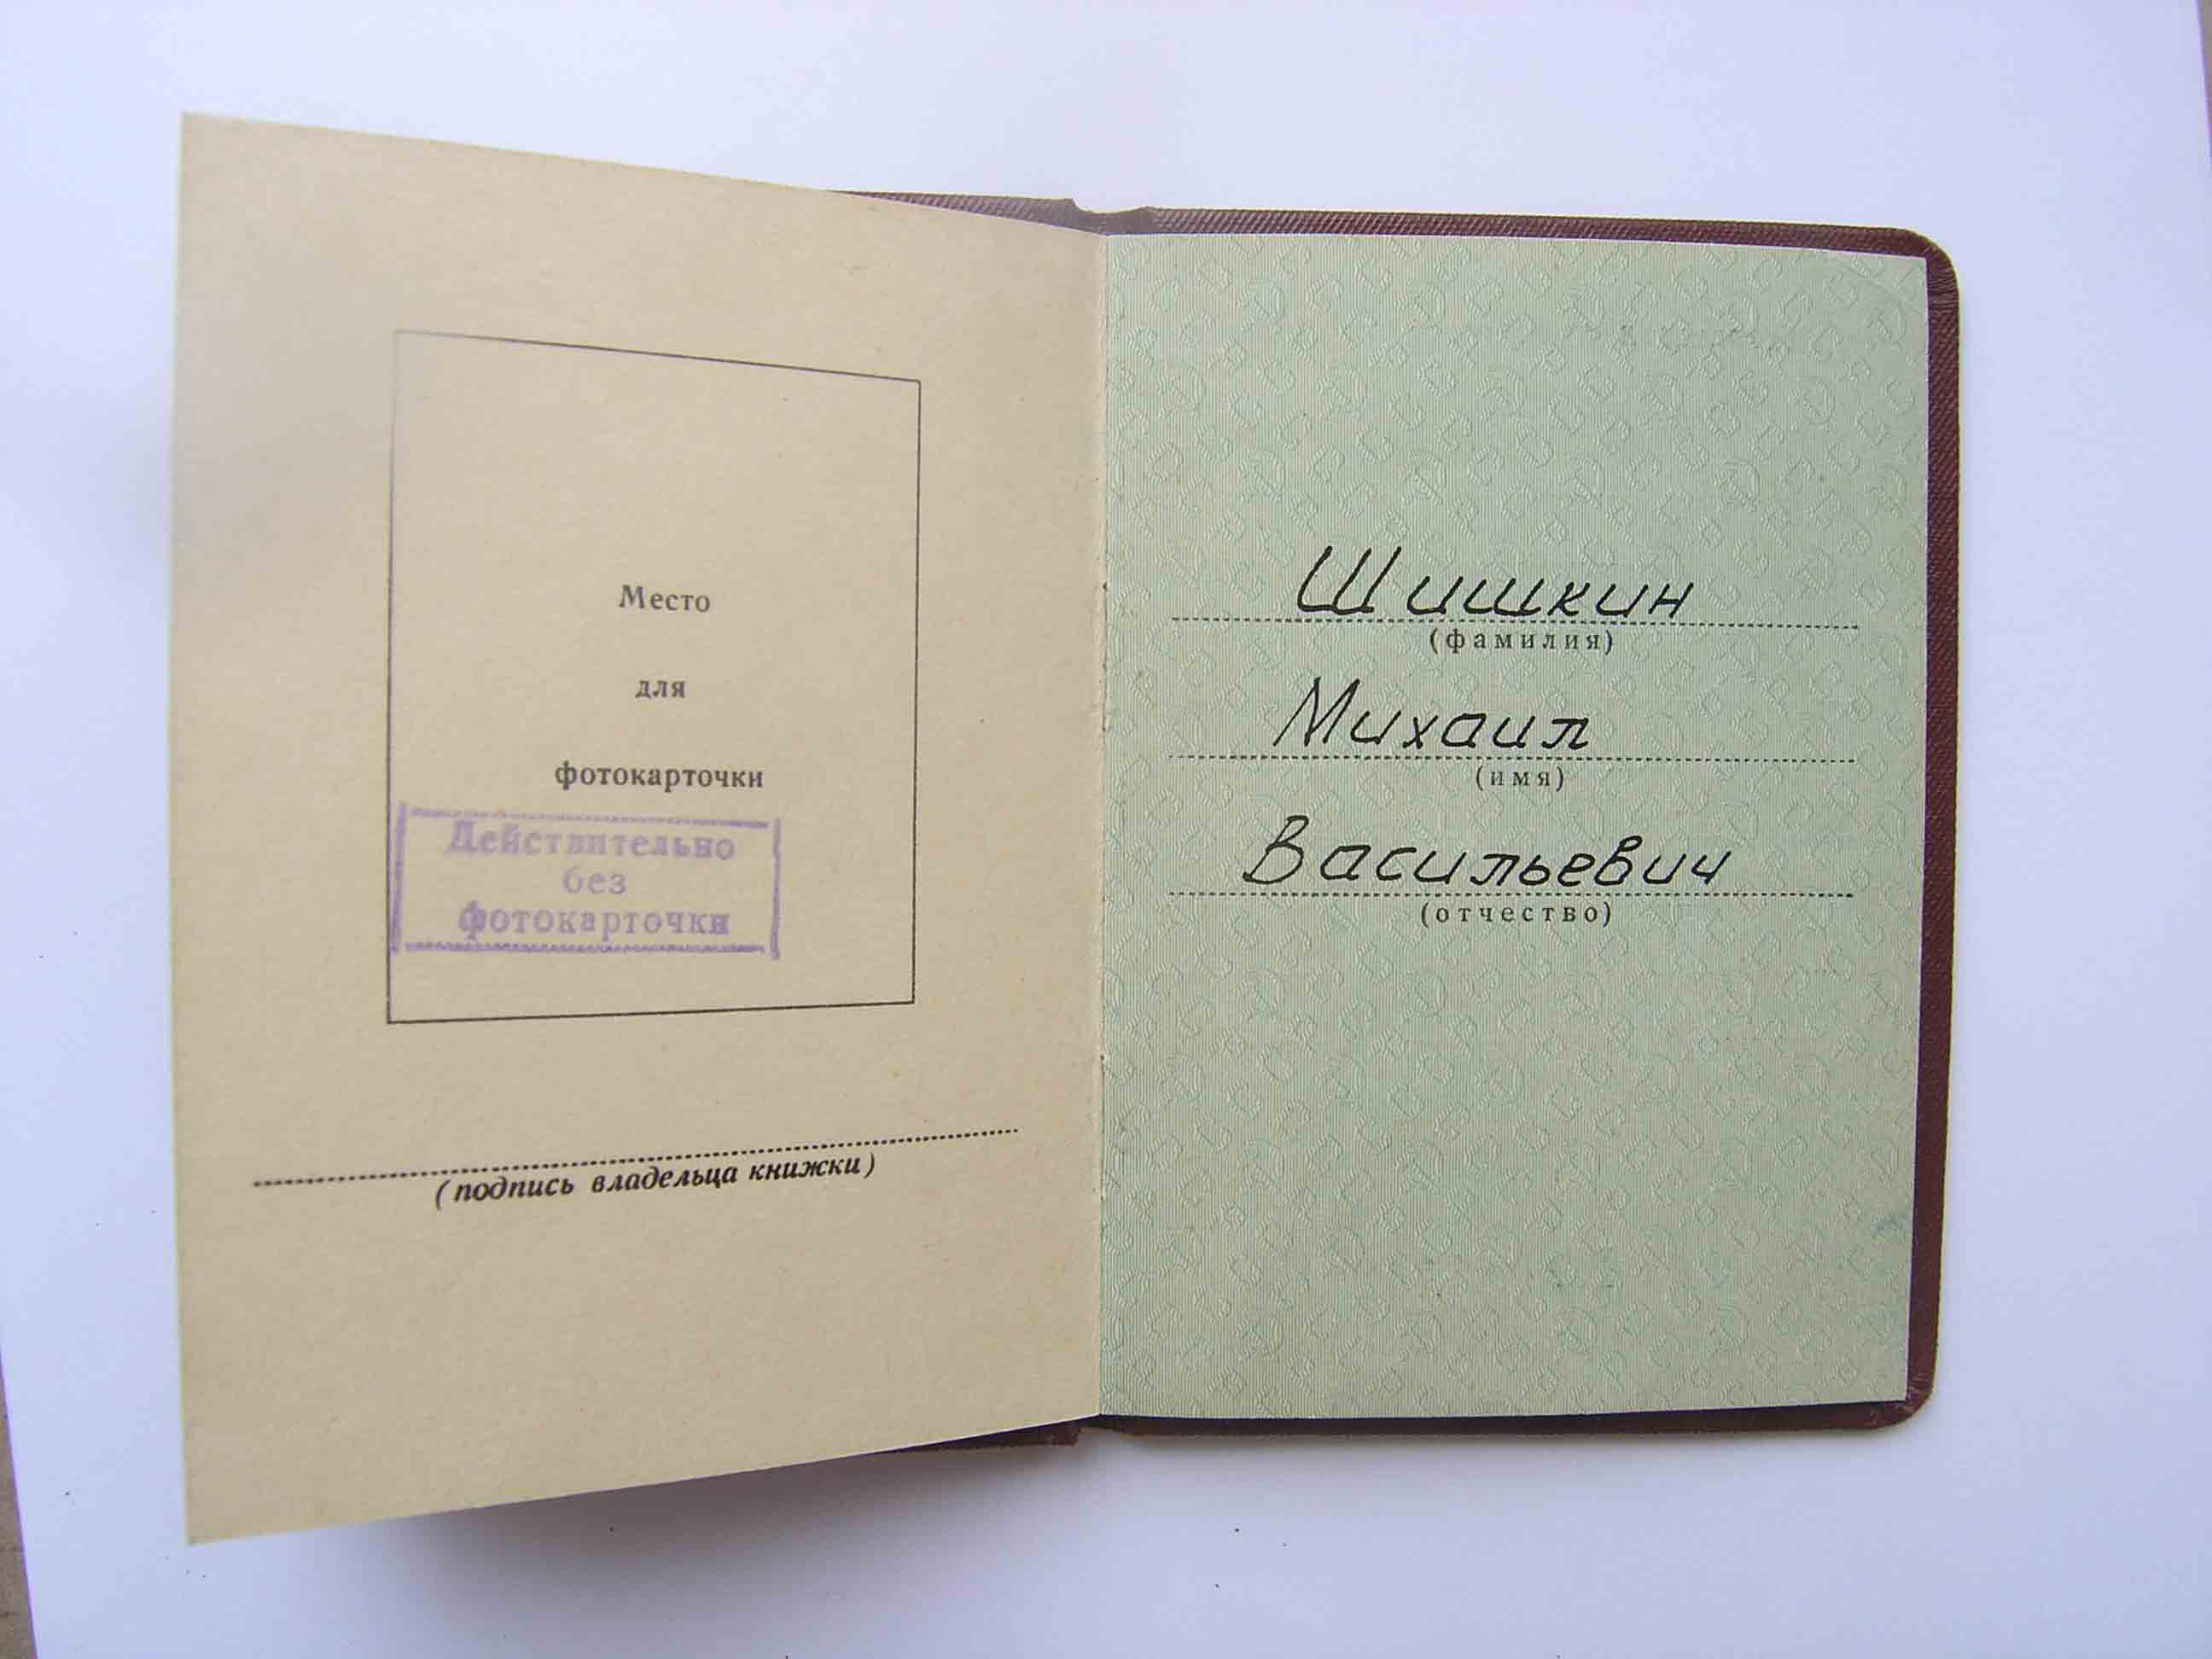 Место
для
фотокарточки
Действительно
без
фотокарточки
(подпись владельца книжки)
Шишкин
(фамилия)
Михаил
(имя)
Васильевич
(отчество)